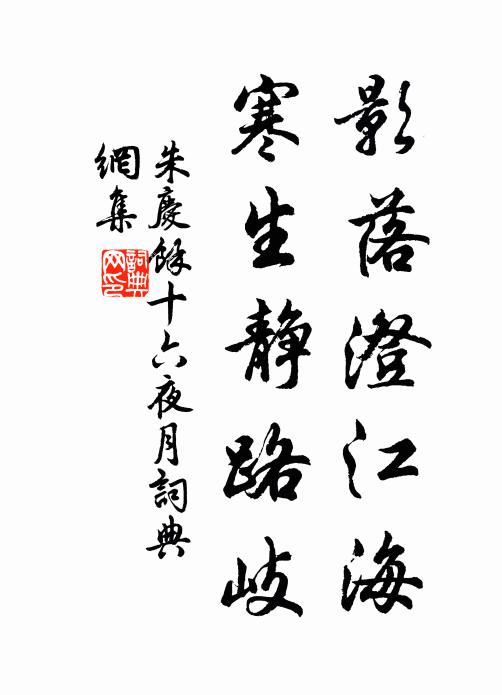 影落澄江海
寒生静路岐
朱慶餘十六夜月詞典
網集
詞典
网印